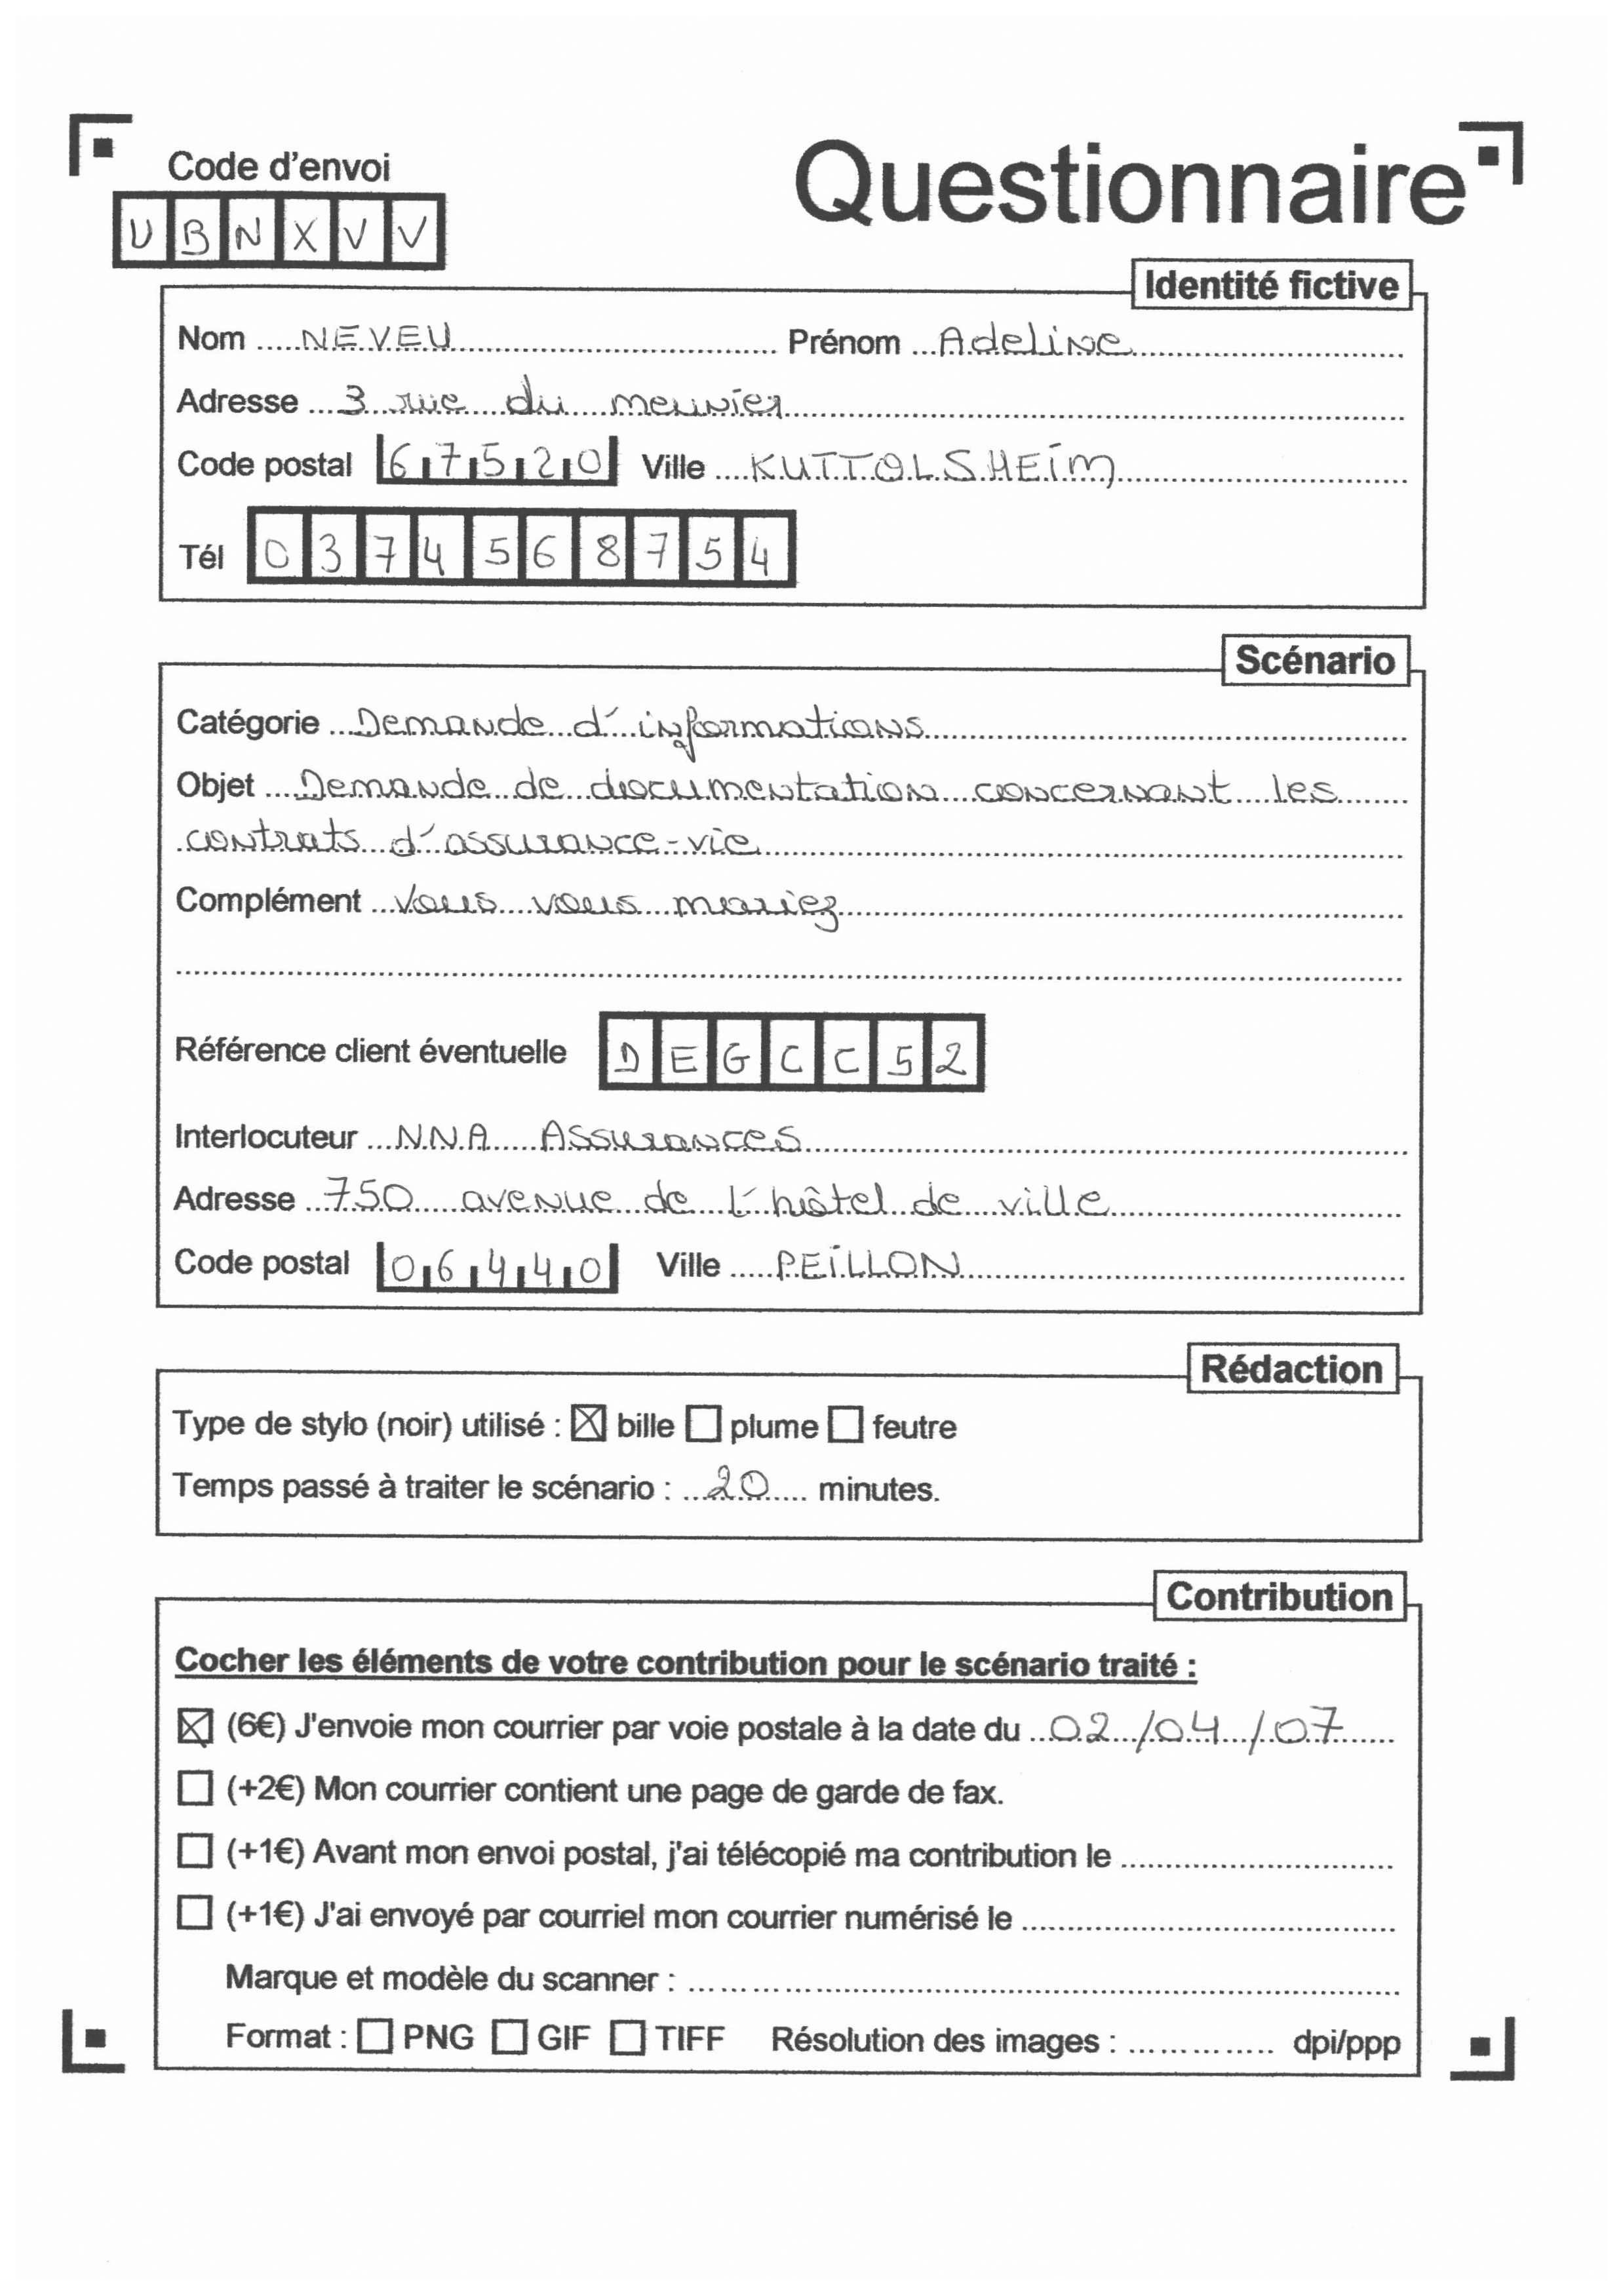 Code d'envoi
Questionnaire
UBNXVV
Identité fictive
Nom NEVEU Prénom Adeline
Adresse 3 rue du meunier
Code postal 67520 Ville KUTTOLSHEIM
Tél 0374568754
Scénario
Catégorie Demande d'informations
Objet Demande de documentation concernant les
contrats d'assurance-vie
Complément Vous vous mariez
Référence client éventuelle DEGCC52
Interlocuteur NNA Assurances
Adresse 750 avenue de l'hôtel de ville
Code postal 06440 Ville PEILLON
Rédaction
Type de stylo (noir) utilisé : ☒ bille ☐ plume ☐ feutre
Temps passé à traiter le scénario : 20 minutes.
Contribution
Cocher les éléments de votre contribution pour le scénario traité :
☒ (6€) J'envoie mon courrier par voie postale à la date du 02/04/07
☐ (+2€) Mon courrier contient une page de garde de fax.
☐ (+1€) Avant mon envoi postal, j'ai télécopié ma contribution le
☐ (+1€) J'ai envoyé par courriel mon courrier numérisé le
Marque et modèle du scanner :
Format : ☐ PNG ☐ GIF ☐ TIFF Résolution des images : dpi/ppp